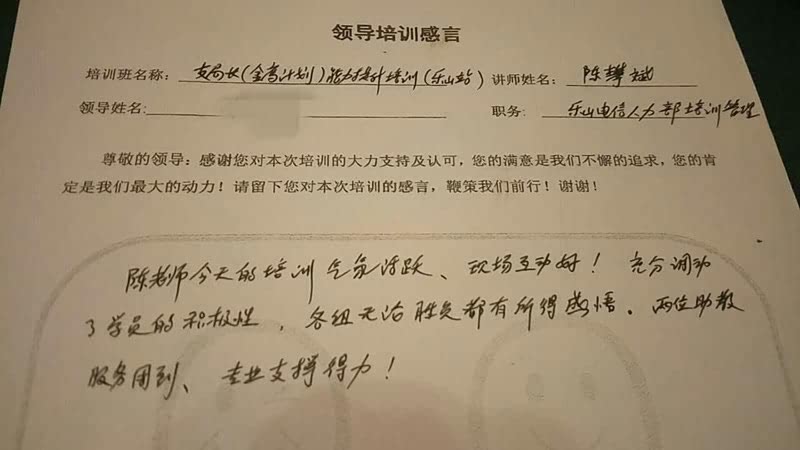 领导培训感言
培训班名称: 支局长(金鹰计划)能力提升培训(乐山站) 讲师姓名: 陈攀斌
领导姓名: 职务: 乐山电信人力部培训管理
尊敬的领导:感谢您对本次培训的大力支持及认可,您的满意是我们不懈的追求,您的肯
定是我们最大的动力!请留下您对本次培训的感言,鞭策我们前行!谢谢!
陈老师今天的培训气氛活跃、现场互动好!充分调动
了学员的积极性,各组无论胜负都有所得感悟。两位助教
服务周到、专业支撑得力!